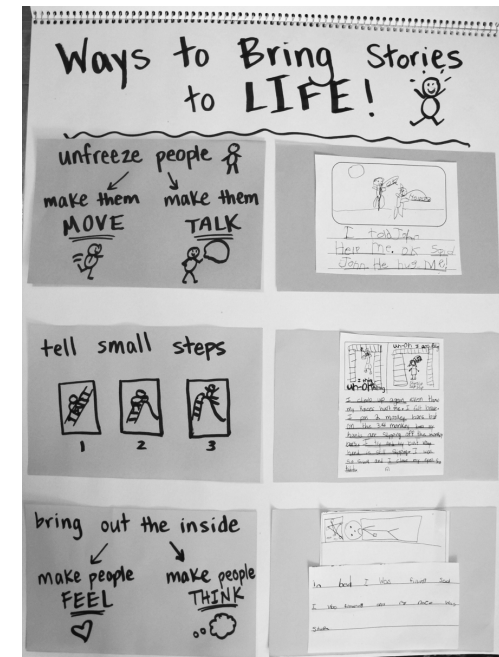 Ways to Bring Stories
to LIFE!
unfreeze people
make them
MOVE
make them
TALK
I told Joh
Help Me. ok Said
John. He hug Me
tell small steps
1
2
3
un-oh
I climb up again even thow
my hands
I fell
I got 2 monkey bars but
on the 3rd monkey bar my
hands are slipping off the monkey
but my
hand is still
I was
So and I close my eyes
bring out the inside
make people
FEEL
make people
THINK
In bed I Was Sad
I Was